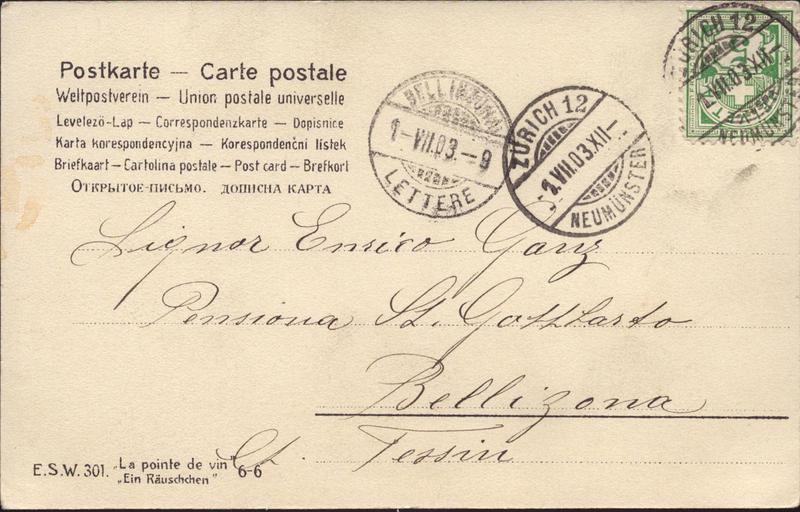 Postkarte — Carte postale
Weltpostverein — Union postale universelle
Levelező-Lap — Correspondenzkarte — Dopisnice
Karta korespondencyjna — Korespondenční lístek
Briefkaart — Cartolina postale — Post card — Brefkort
Открытое-письмо. дописна карта
BELLINZONA
1-VII.03.-9
LETTERE
ZÜRICH 12
2.VII.03.XII-
NEUMÜNSTER
ZÜRICH 12
VII.03.XII-
NEUMÜNSTER
Signor Enrico Ganz
Pensiona St. Gotthardo
Bellizona
Ct. Tessin
E.S.W. 301. „La pointe de vin" 6-6
„Ein Räuschchen"